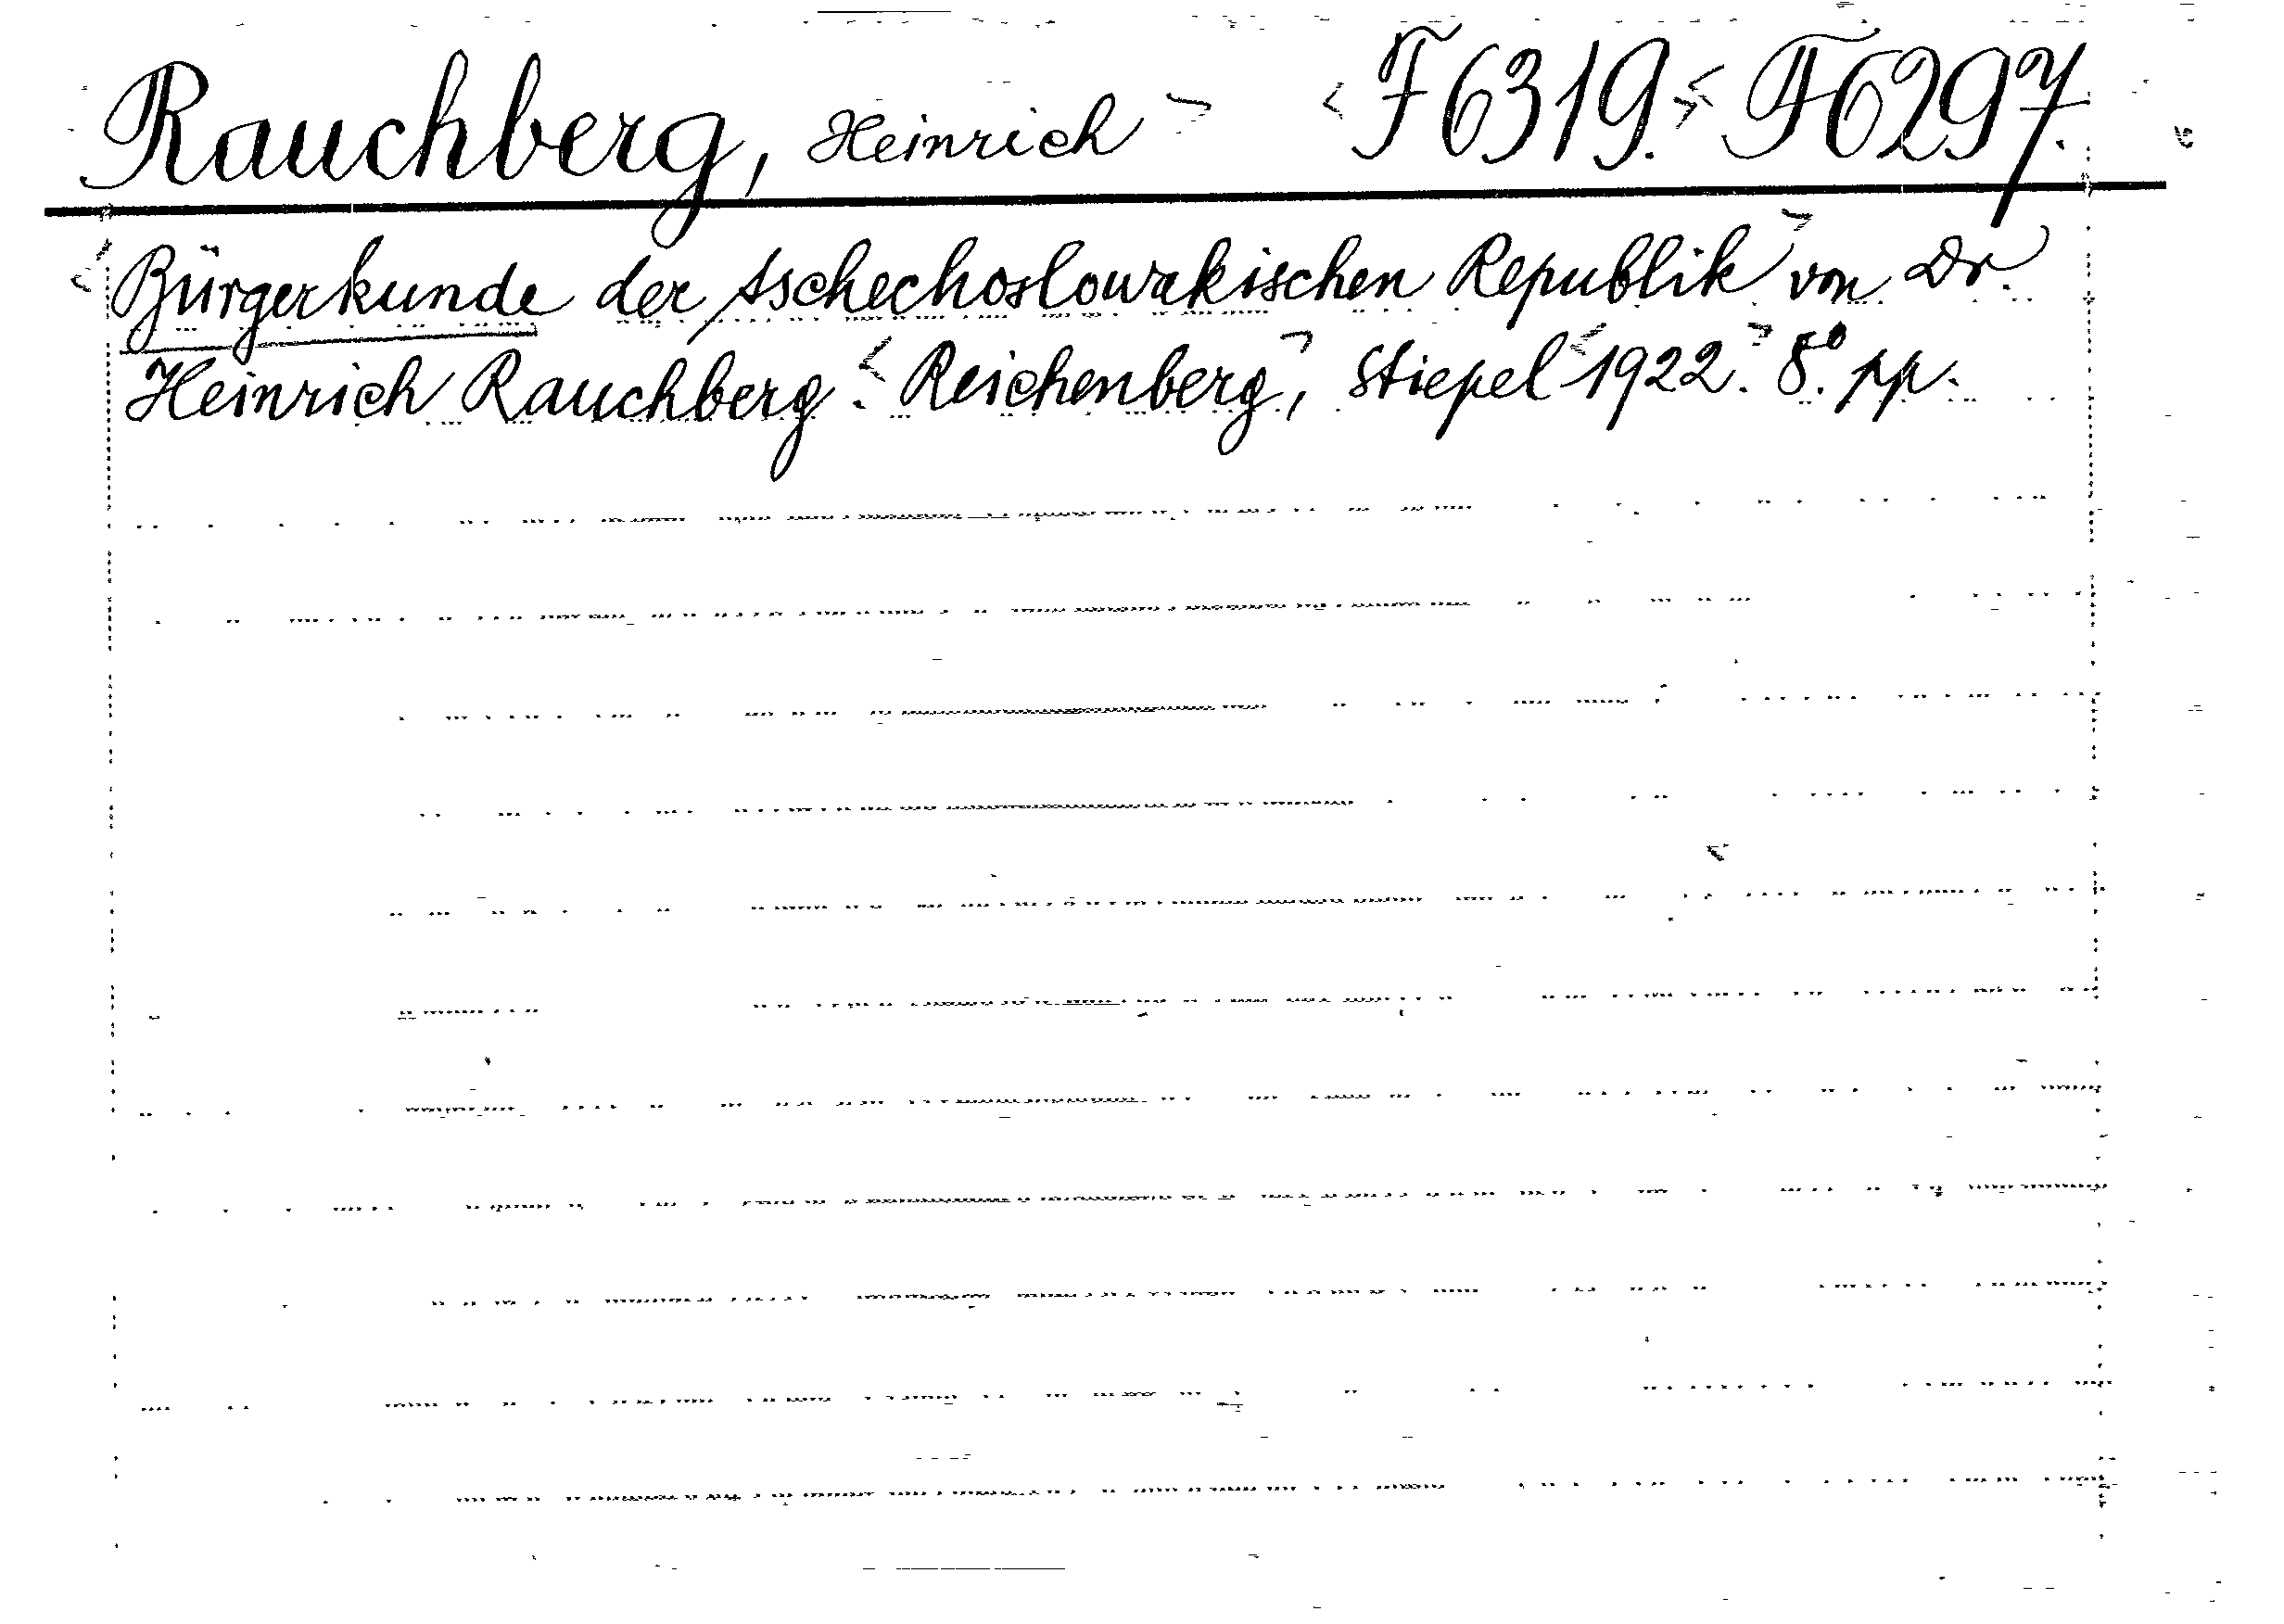 Rauchberg, Heinrich F6319. F6297.
Bürgerkunde der tschechoslowakischen Republik von Dr.
Heinrich Rauchberg. Reichenberg, Stiepel 1922. 8° pp.